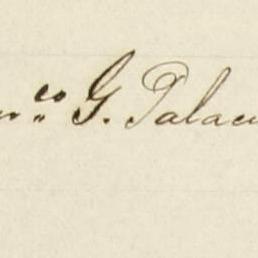 n.co G. Palac